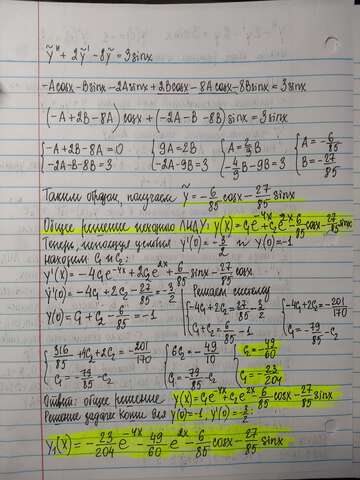 ỹ'' + 2ỹ' - 8ỹ = 3sinx
-Acosx - Bsinx - 2Asinx + 2Bcosx - 8Acosx - 8Bsinx = 3sinx
(-A + 2B - 8A) cosx + (-2A - B - 8B) sinx = 3sinx
{-A + 2B - 8A = 0 {9A = 2B {A = 2/9 B {A = -6/85
{-2A - B - 8B = 3 {-2A - 9B = 3 {-4/9 B - 9B = 3 {B = -27/85
Таким образом, получаем ỹ = -6/85 cosx - 27/85 sinx
Общее решение исходного ЛНДУ: y(x) = C₁e^-4x + C₂e^2x - 6/85 cosx - 27/85 sinx
Теперь, используя условия y'(0) = -3/2 и y(0) = -1
находим C₁ и C₂:
y'(x) = -4C₁e^-4x + 2C₂e^2x + 6/85 sinx - 27/85 cosx
y'(0) = -4C₁ + 2C₂ - 27/85 = -3/2 Решаем систему
y(0) = C₁ + C₂ - 6/85 = -1 {-4C₁ + 2C₂ - 27/85 = -3/2 {-4C₁ + 2C₂ = -201/170
{C₁ + C₂ = 6/85 - 1 {C₁ = -79/85 - C₂
{316/85 + 4C₂ + 2C₂ = -201/170 {6C₂ = -49/10 {C₂ = -49/60
{C₁ = -79/85 - C₂ {C₁ = -79/85 - C₂ {C₁ = -23/204
Ответ: общее решение y(x) = C₁e^-4x + C₂e^2x - 6/85 cosx - 27/85 sinx
Решение задачи Коши для y(0) = -1, y'(0) = -3/2
y₁(x) = -23/204 e^-4x - 49/60 e^2x - 6/85 cosx - 27/85 sinx